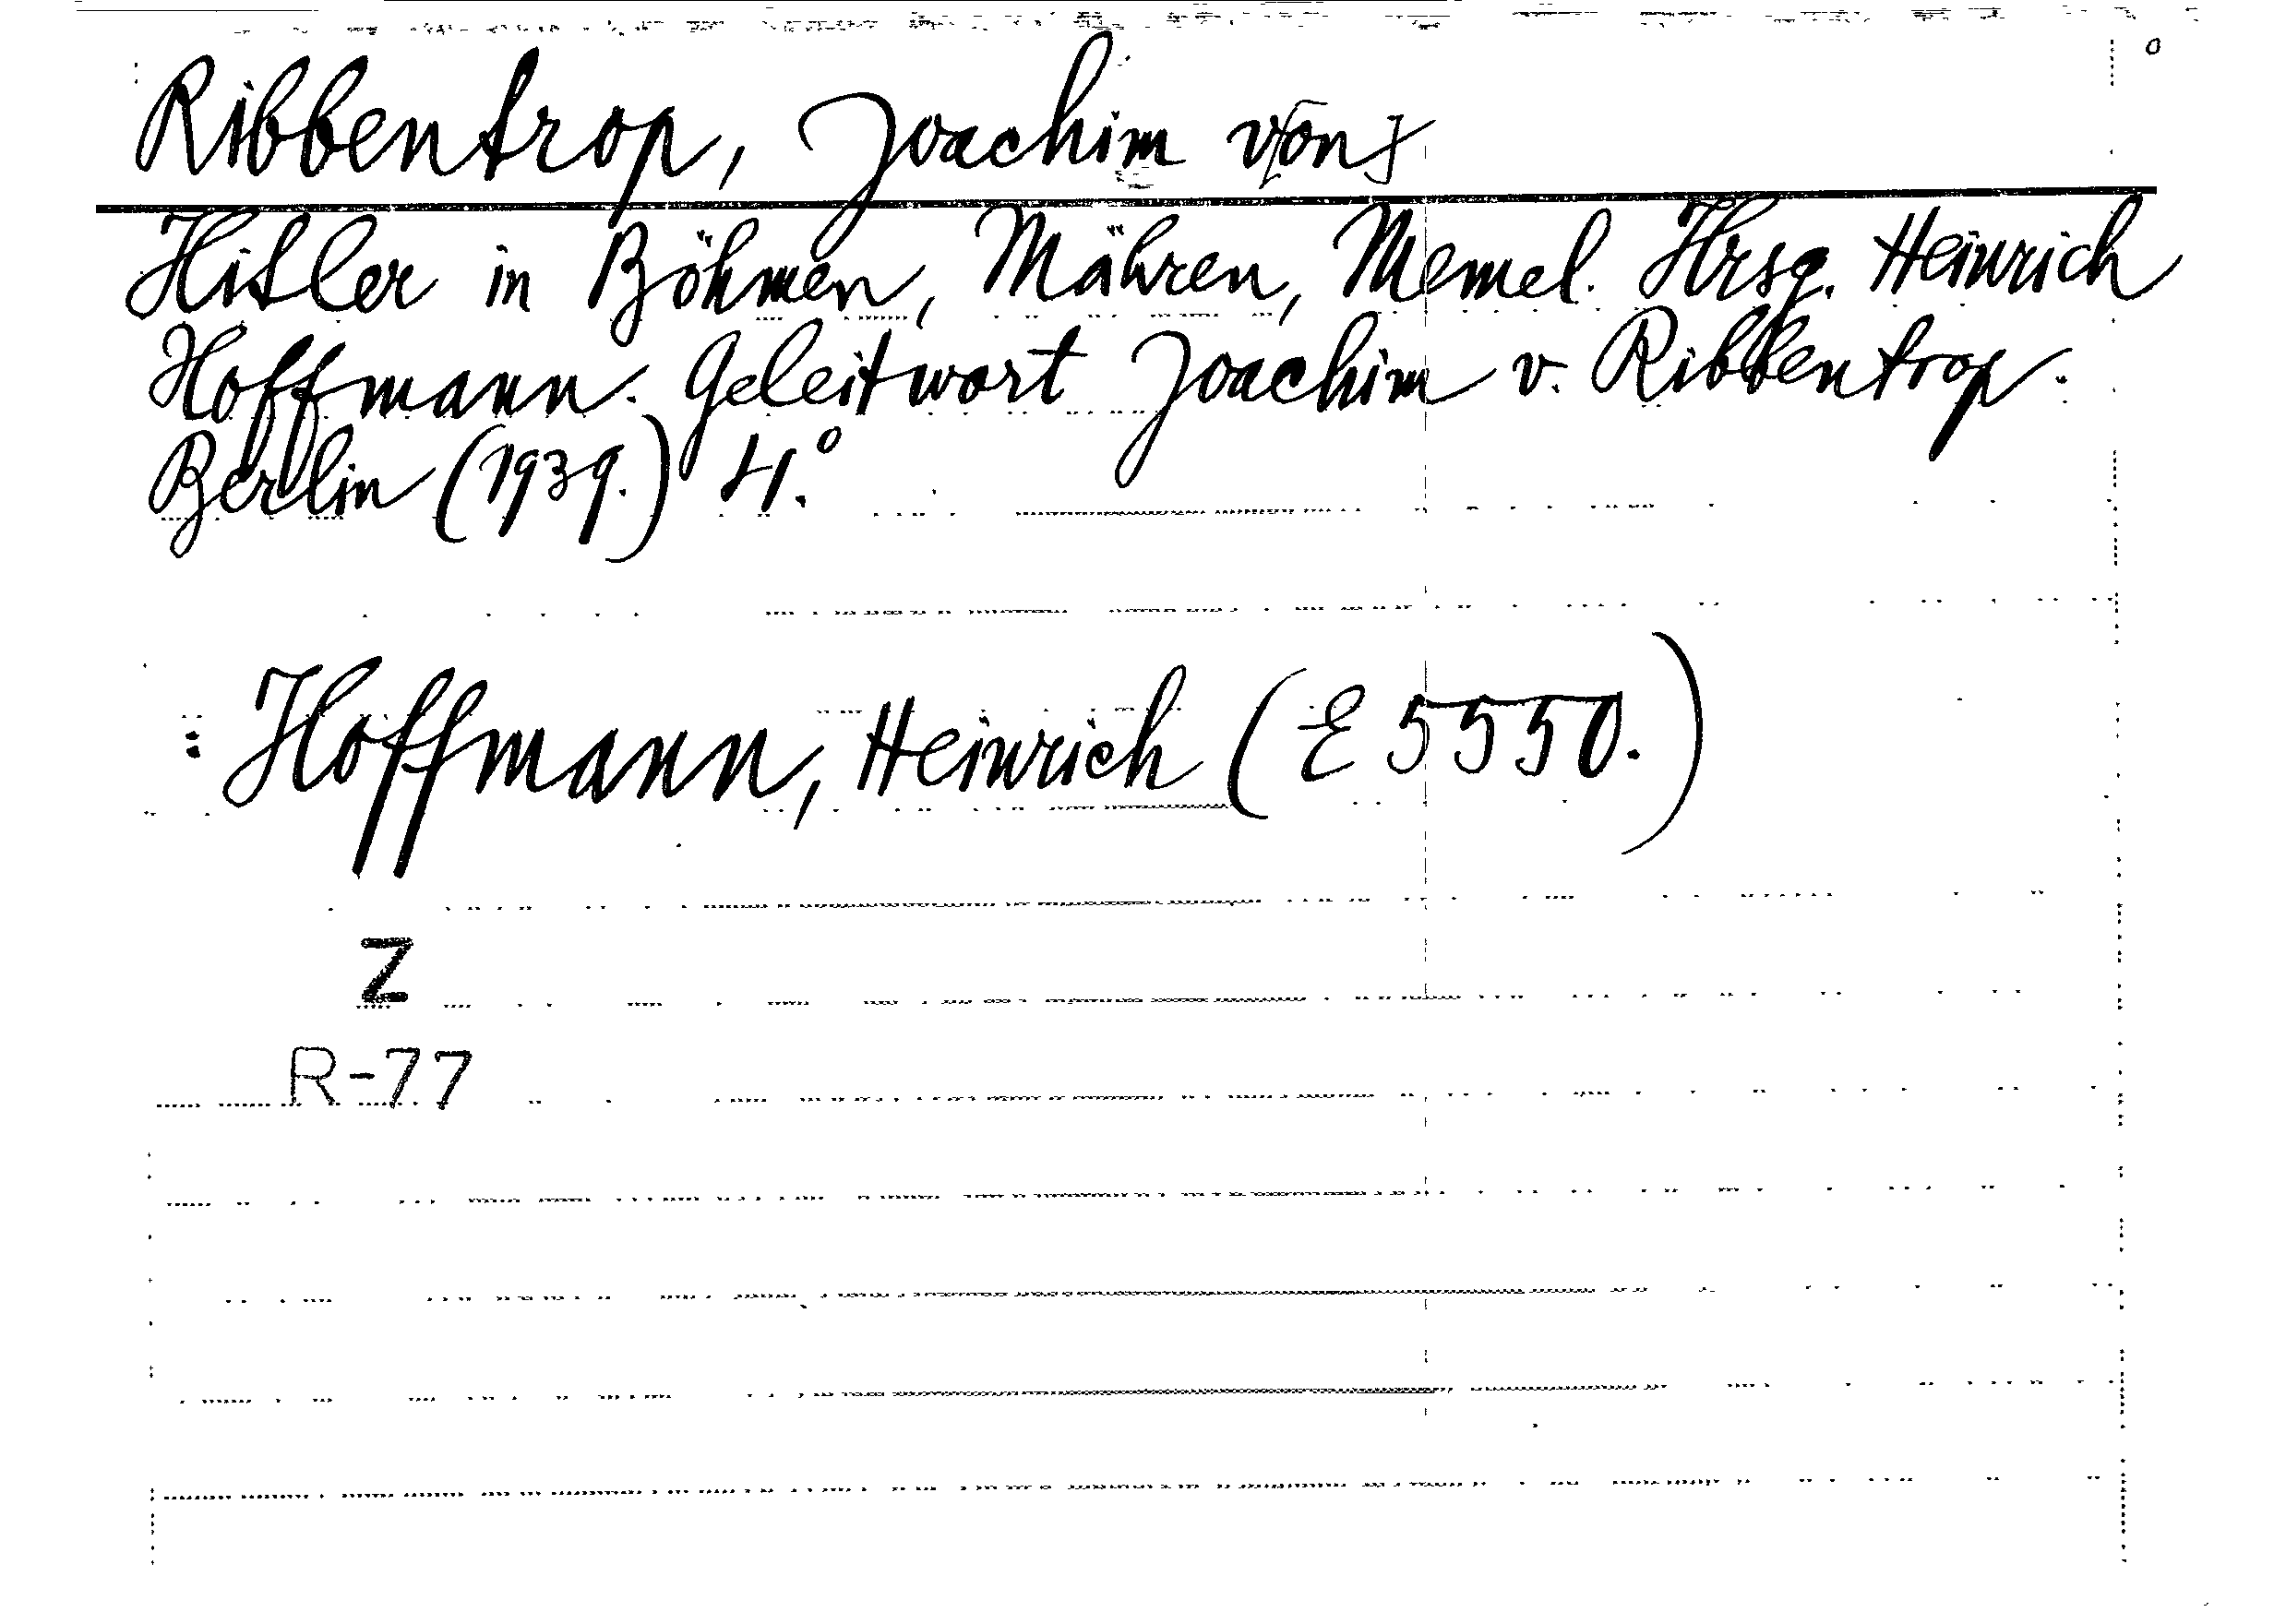 Ribbentrop, Joachim v[on]
Hitler in Böhmen, Mähren, Memel. Hrsg. Heinrich
Hoffmann. Geleitwort Joachim v. Ribbentrop.
Berlin (1939.) 4.°
: Hoffmann, Heinrich (E 5550.)
Z
R-77